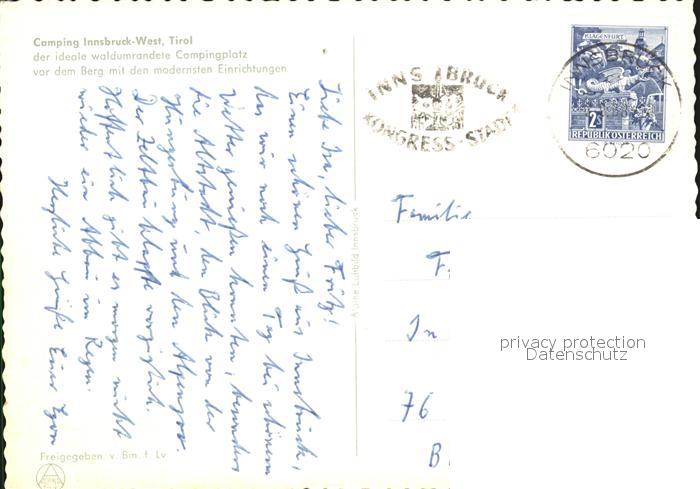 Camping Innsbruck-West, Tirol
der ideale waldumrandete Campingplatz
vor dem Berg mit den modernsten Einrichtungen
Liebe Ira, lieber Fritz!
Einen schönen Gruß aus Innsbruck,
das wir noch einen Tag bei schönem
Wetter genießen konnten, besonders
die Altstadt, den Blick von der
Hungerburg und den Alpenzoo.
Der Zeltbau klappte vorzüglich.
Hoffentlich gibt es morgen nicht
wieder ein Abbau im Regen.
Herzliche Grüße Euer Egon
Freigegeben v. Bm. f. Lv
Alpine Luftbild Innsbruck
INNSBRUCK
KONGRESS-STADT
KLAGENFURT
2 S
REPUBLIK ÖSTERREICH
INNSBRUCK
6020
Familie
F
In
76
B
privacy protection
Datenschutz